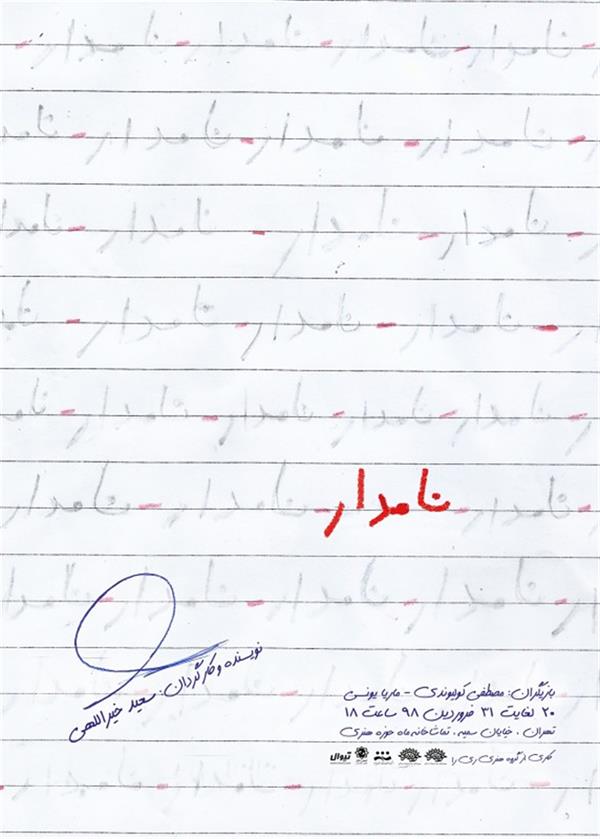 نامدار - نامدار - نامدار - نامدار
نامدار - نامدار - نامدار - نامدار
نامدار - نامدار - نامدار - نامدار
نامدار - نامدار - نامدار - نامدار
نامدار - نامدار - نامدار - نامدار
نامدار - نامدار - نامدار - نامدار
نامدار
نامدار - نامدار - نامدار - نامدار
نویسنده و کارگردان: سعید خیراللهی
بازیگران: مصطفی کولیوندی - ماریا یونسی
۲۰ لغایت ۳۱ فروردین ۹۸ ساعت ۱۸
تهران ، خیابان سمیه ، تماشاخانه ماه حوزه هنری
کاری از گروه هنری ری را
تیوال